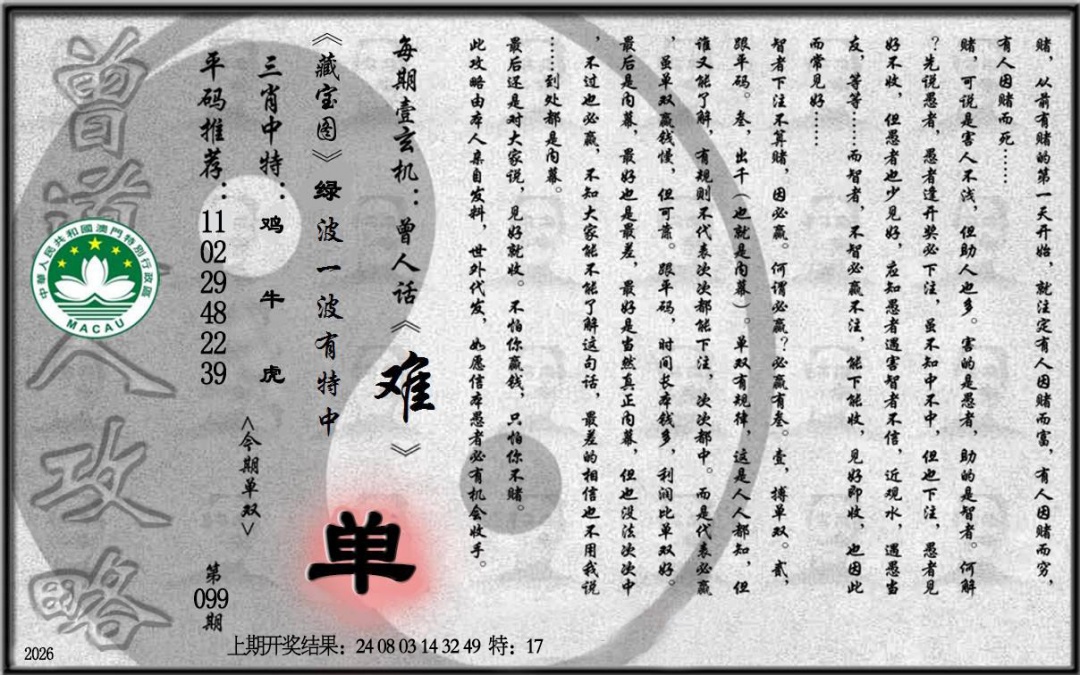 赌，从前有赌的第一天开始，就注定有人因赌而富，有人因赌而穷，
有人因赌而死……
赌，可说是害人不浅，但助人也多。害的是愚者，助的是智者。何解
？先说愚者，愚者逢开奖必下注，虽不知中不中，但也下注，愚者见
好不收，但愚者也少见好，应知愚者遇害智者不信，近观水，遇愚当
友，等等……而智者，不智必赢不注，能下能收，见好即收，也因此
而常见好……
智者下注不算赌，因必赢。何谓必赢？必赢有叁。壹，搏单双。贰，
跟单码。叁，出千（也就是内幕）。单双有规律，这是人人都知，但
谁又能了解，有规则不代表次次都能下注，次次都中。而是代表必赢
，虽单双赢钱慢，但可靠。跟单码，时间长本钱多，利润比单双好。
最后是内幕，最好也是最差，最好是当然真正内幕，但也没法次次中
，不过也必赢，不知大家能不能了解这句话，最差的相信也不用我说
……到处都是内幕。
最后还是对大家说，见好就收。不怕你赢钱，只怕你不赌。
此攻略由本人亲自发料，世外代发，如愿信本愚者必有机会收手。
每期壹玄机：曾人话《难》
《藏宝图》绿波一波有特中
单
三肖中特：鸡 牛 虎
<今期单双>
平码推荐：11 02 29 48 22 39
第099期
曾道人攻略
中華人民共和國澳門特別行政區
MACAU
上期开奖结果：24 08 03 14 32 49 特：17
2026